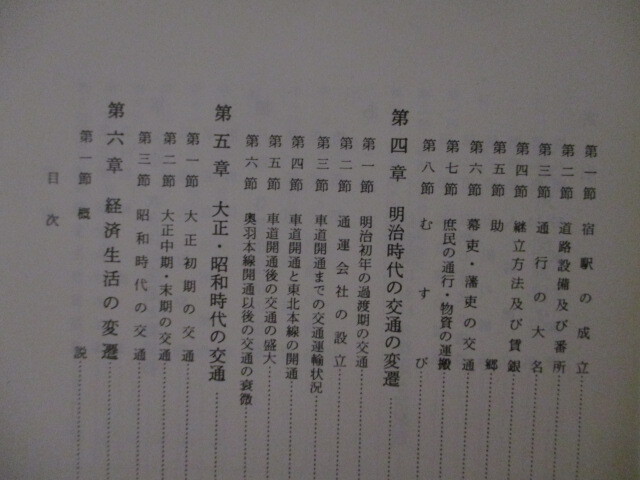 第一節 宿駅の成立
第二節 道路設備及び番所
第三節 通行の大名
第四節 継立方法及び賃銀
第五節 助郷
第六節 幕吏・藩吏の交通
第七節 庶民の通行・物資の運搬
第八節 むすび
第四章 明治時代の交通の変遷
第一節 明治初年の過渡期の交通
第二節 通運会社の設立
第三節 車道開通までの交通運輸状況
第四節 車道開通と東北本線の開通
第五節 車道開通後の交通の盛大
第六節 奥羽本線開通以後の交通の衰微
第五章 大正・昭和時代の交通
第一節 大正初期の交通
第二節 大正中期・末期の交通
第三節 昭和時代の交通
第六章 経済生活の変遷
第一節 概説
目次